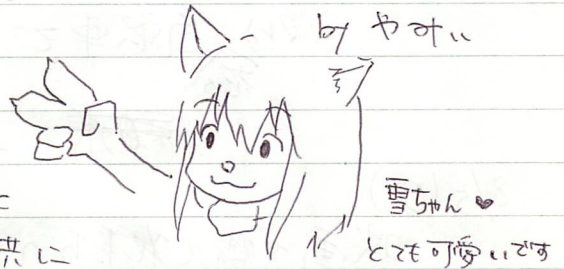 by やみぃ
雪ちゃん♥
とても可愛いです
に
共に